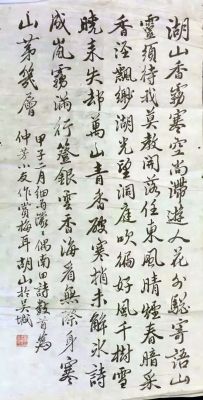 湖山香霧寒空尚滯遊人花事驄寄語山
靈須待我莫教開落任東風晴煙春暗采
香涇飄緲湖光望洞庭吹徧好風千樹雪
曉來失却萬山青香破寒梢未解氷詩
成嵐霧滿行簦銀雲香海看無際身寒
山第幾層
甲子二月细雨濛偶南田詩數首為
仲芳小友作賞梅耳 胡山於吴城